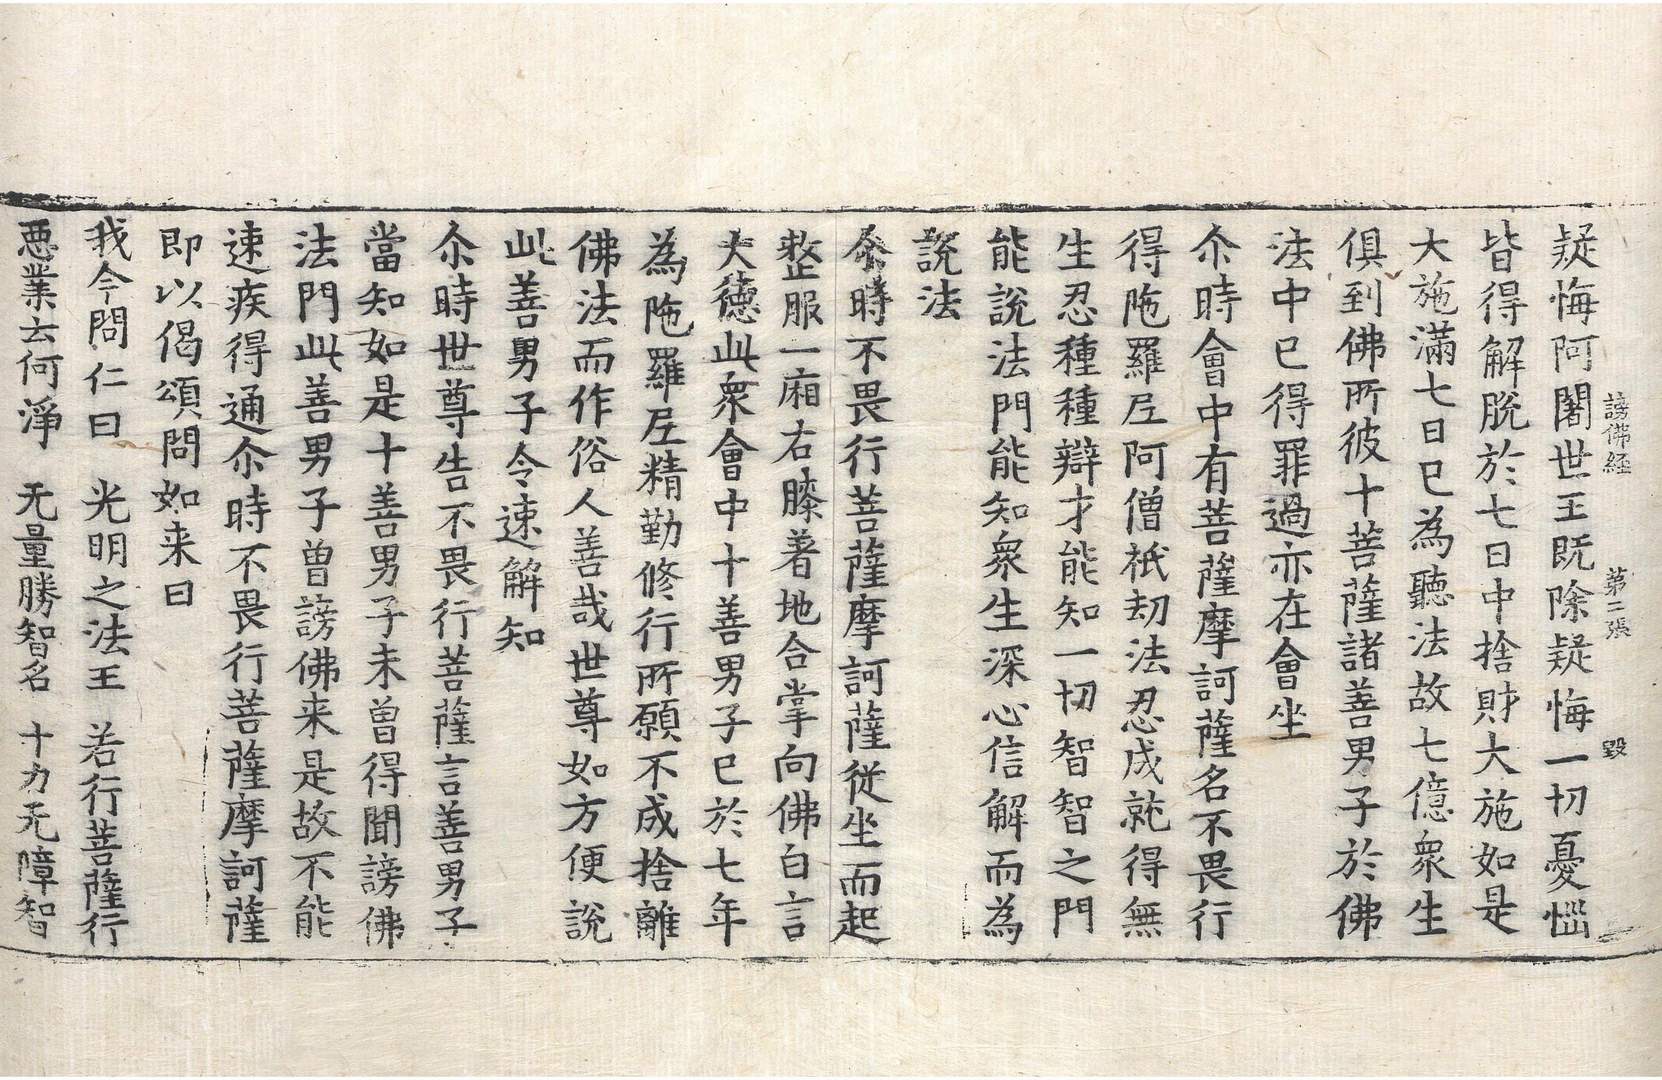 謗佛経 第二張 毀
疑悔阿闍世王既除疑悔一切憂惱
皆得解脫於七日中捨財大施如是
大施滿七日已為聽法故七億衆生
俱到佛所彼十菩薩諸善男子於佛
法中已得罪過亦在會坐
尒時會中有菩薩摩訶薩名不畏行
得陁羅尼阿僧祇劫法忍成就得無
生忍種種辯才能知一切智智之門
能說法門能知衆生深心信解而為
說法
尒時不畏行菩薩摩訶薩從坐而起
整服一廂右膝著地合掌向佛白言
大德此衆會中十善男子已於七年
為陁羅尼精勤修行所願不成捨離
佛法而作俗人善哉世尊如方便說
此善男子令速解知
尒時世尊告不畏行菩薩言善男子
當知如是十善男子未曽得聞謗佛
法門此善男子曽謗佛来是故不能
速疾得通尒時不畏行菩薩摩訶薩
即以偈頌問如来曰
我今問仁曰 光明之法王 若行菩薩行
惡業云何淨 无量勝智名 十力无障智